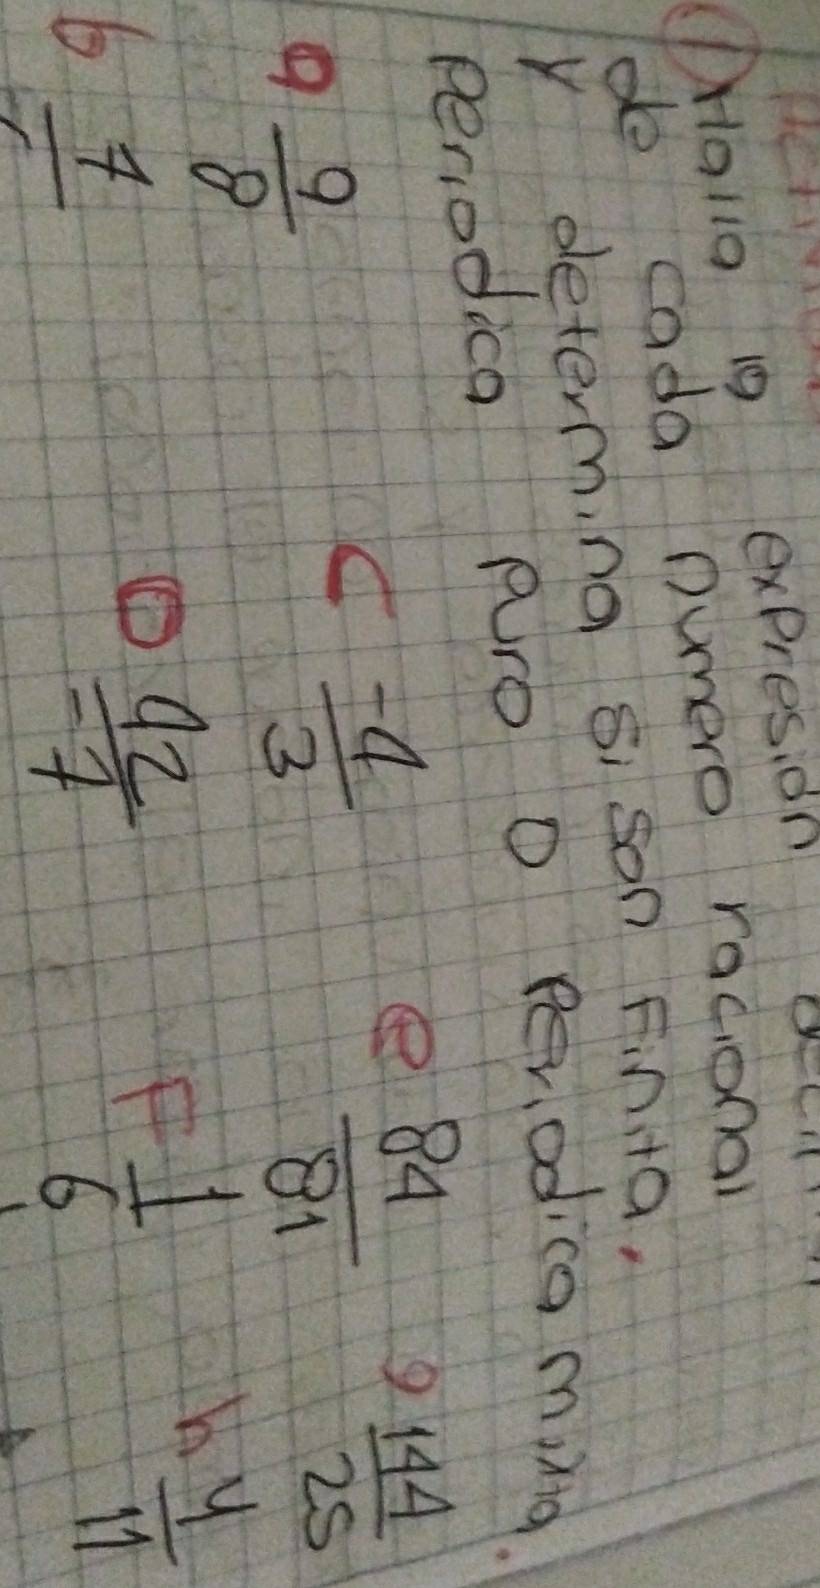 ① Halla la expresión
de cada número racional
y determina si son Finita.
periodica puro o periodica mixta.
a 9/8 c -4/3 e 84/81 g 144/25
b 7 D 42/-7 F 1/6 h 4/11